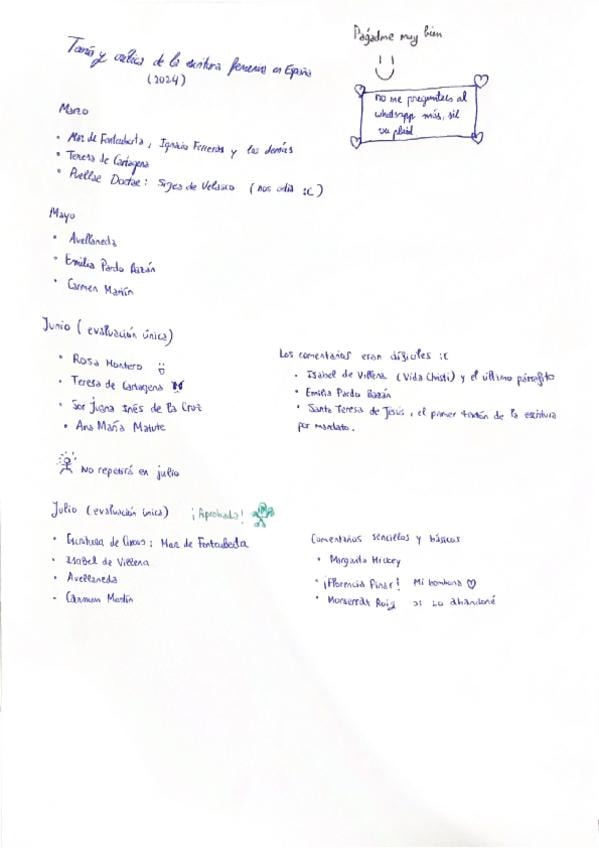 Pagadme muy bien
Teoría y crítica de la escritura femenina en España
(2024)
no me preguntéis al
whatsapp más, sil
vu plaid
Marzo
• Mar de Fontcuberta, Ignacio Ferreras y los demás
• Teresa de Cartagena
• Puellae Doctae: Sigea de Velasco (nos odia :C)
Mayo
• Avellaneda
• Emilia Pardo Bazán
• Carmen Martín
Junio (evaluación única)
• Rosa Montero
• Teresa de Cartagena
• Sor Juana Inés de la Cruz
• Ana María Matute
Los comentarios eran difíciles :C
• Isabel de Villena (Vida Christi) y el último párrafito
• Emilia Pardo Bazán
• Santa Teresa de Jesús, el primer textón de la escritura
por mandato.
No repetirá en julio
Julio (evaluación única) ¡Aprobado!
• Escritura de Circus: Mar de Fontcuberta
• Isabel de Villena
• Avellaneda
• Carmen Martín
Comentarios sencillos y básicos
• Margarita Hickey
• ¡Florencia Pinar! Mi bombona ♡
• Monserrat Roig :( La abandoné